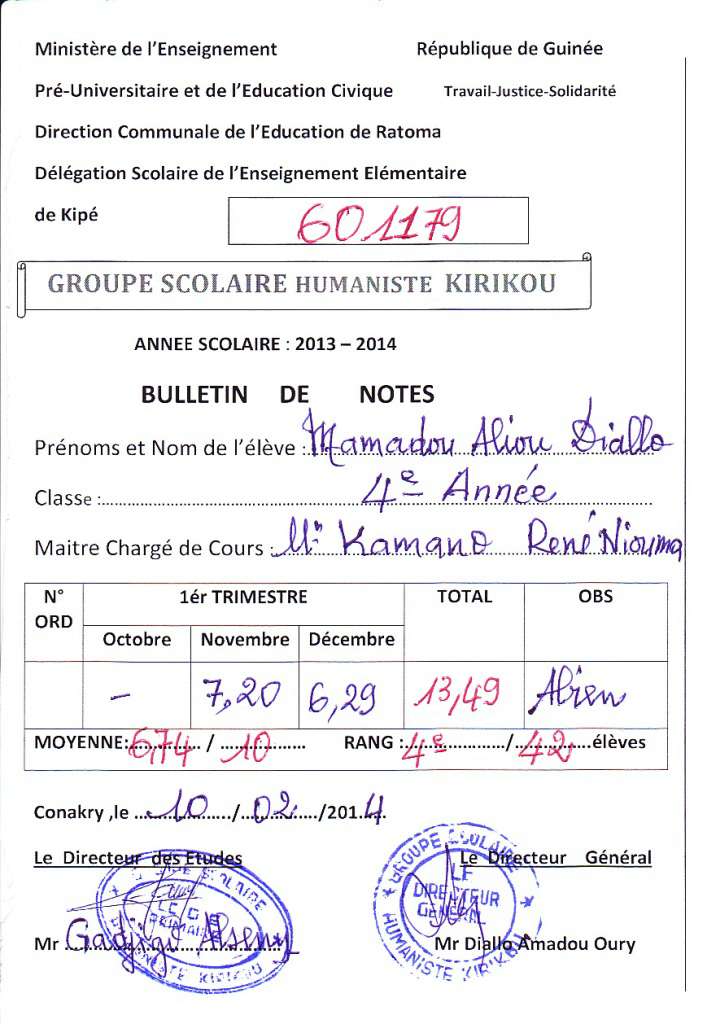 Ministère de l'Enseignement République de Guinée
Pré-Universitaire et de l'Education Civique Travail-Justice-Solidarité
Direction Communale de l'Education de Ratoma
Délégation Scolaire de l'Enseignement Elémentaire
de Kipé 601179
GROUPE SCOLAIRE HUMANISTE KIRIKOU
ANNEE SCOLAIRE : 2013 – 2014
BULLETIN DE NOTES
Prénoms et Nom de l'élève : Mamadou Aliou Diallo
Classe : 4e Année
Maitre Chargé de Cours : Mr Kamano René Niouma
N° ORD 1ér TRIMESTRE TOTAL OBS
Octobre Novembre Décembre
– 7,20 6,29 13,49 ABien
MOYENNE: 6,74 / 10 RANG : 4e / 42 élèves
Conakry ,le 10/02/2014.
Le Directeur des Etudes Le Directeur Général
GROUPE SCOLAIRE
LE DIRECTEUR GENERAL
HUMANISTE KIRIKOU
SCOLAIRE
PRIMAIRE
HUMANISTE KIRIKOU
Mr Gadjigo Alseny Mr Diallo Amadou Oury